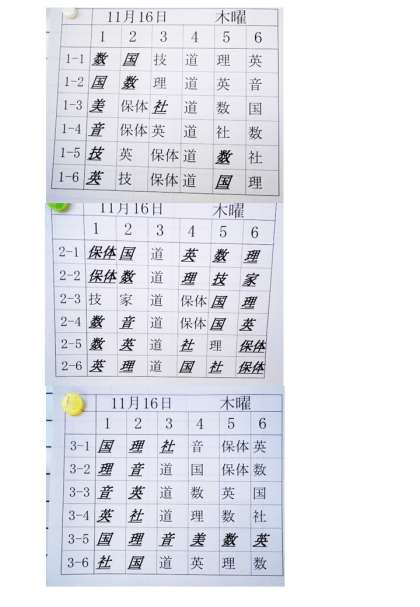 11月16日 木曜
1 2 3 4 5 6
1-1 数 国 技 道 理 英
1-2 国 数 理 道 英 音
1-3 美 保体 社 道 数 国
1-4 音 保体 英 道 社 数
1-5 技 英 保体 道 数 社
1-6 英 技 保体 道 国 理
11月16日 木曜
1 2 3 4 5 6
2-1 保体 国 道 英 数 理
2-2 保体 数 道 理 技 家
2-3 技 家 道 保体 国 理
2-4 数 音 道 保体 国 英
2-5 数 英 道 社 理 保体
2-6 英 理 道 国 社 保体
11月16日 木曜
1 2 3 4 5 6
3-1 国 理 社 音 保体 英
3-2 理 音 道 国 保体 数
3-3 音 英 道 数 英 国
3-4 英 社 道 理 数 社
3-5 国 理 音 美 数 英
3-6 社 国 道 英 理 数